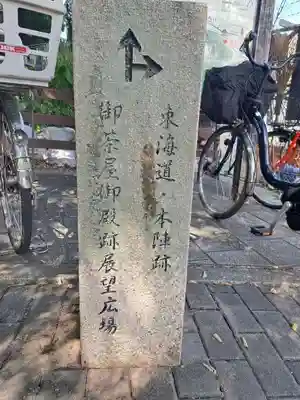 東海道・本陣跡
御茶屋御殿跡展望広場